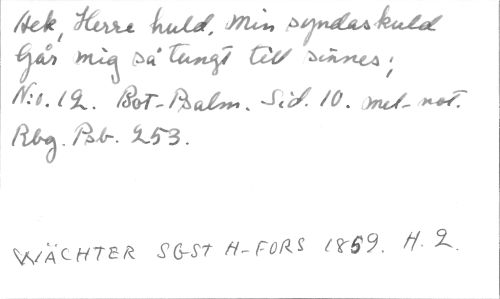 Ack, Herre huld, min syndaskuld
Går mig så tungt till sinnes;
N:o. 12. Bot-Psalm. Sid. 10. mel-not.
Rbg. Psb. 253.
WÄCHTER SGST H-FORS 1859. H. 2.